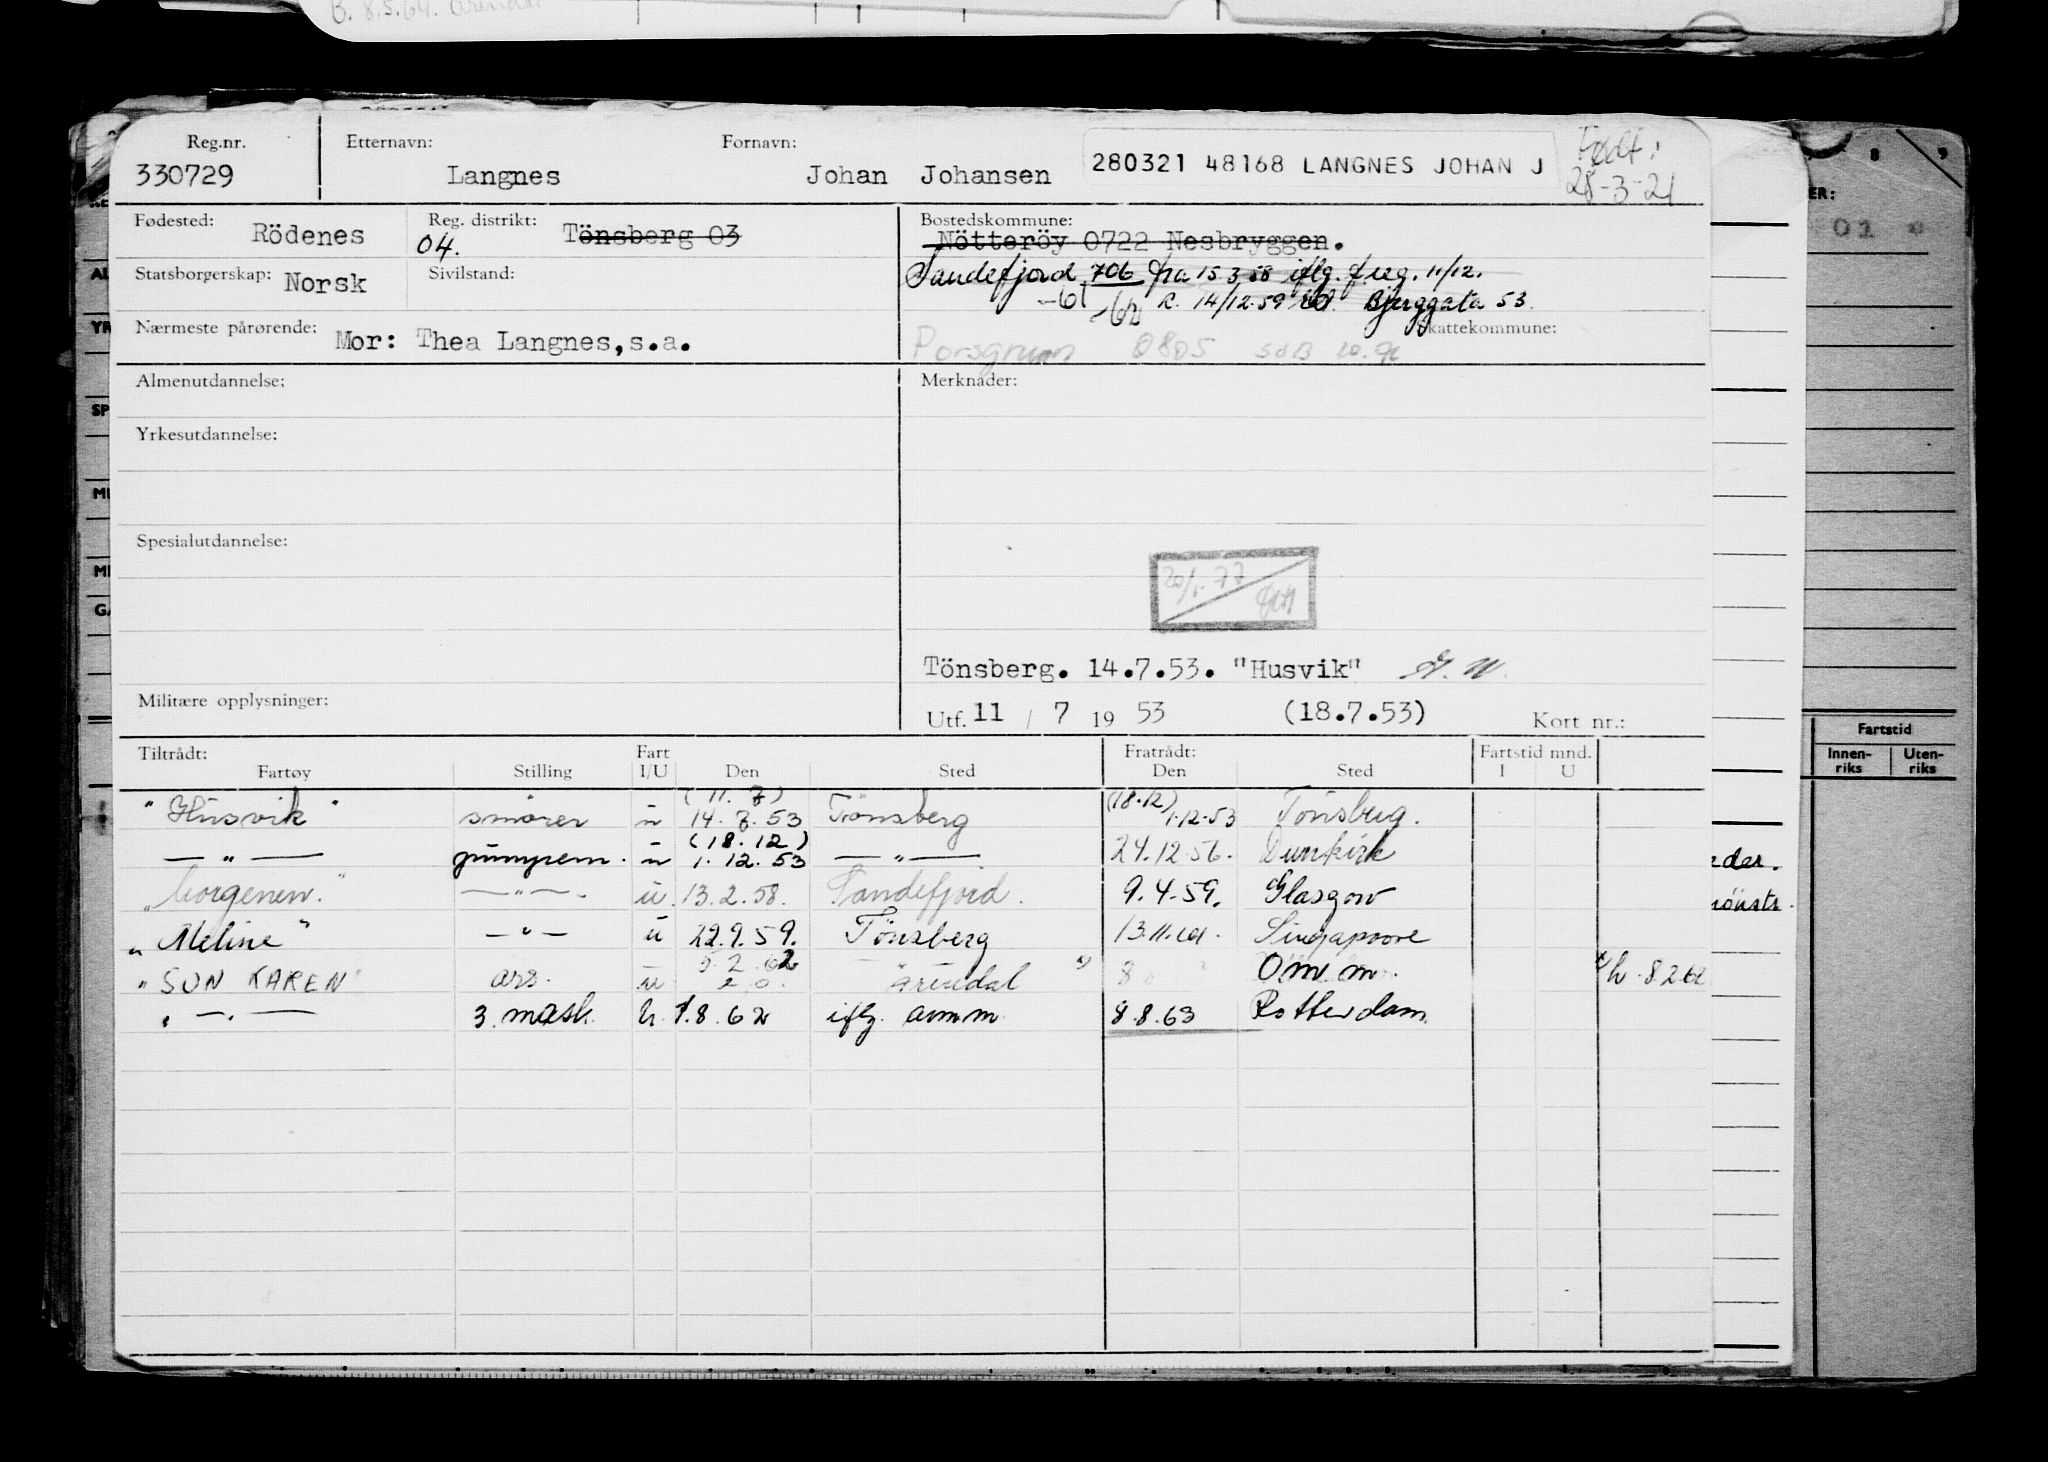 B. 8.5.64. Arendal
Reg.nr. Etternavn: Fornavn: Født:
330729 Langnes Johan Johansen 280321 48168 LANGNES JOHAN J 28-3-21
Fødested: Rödenes Reg. distrikt: 04. Tönsberg 03 Bostedskommune: Nötteröy 0722 Nesbryggen.
Statsborgerskap: Norsk Sivilstand: Sandefjord 706 fra 15.3.58 iflg. f.reg. 11/12.
-61 -62 R. 14/12.59 Bjerggata 53.
Nærmeste pårørende: Mor: Thea Langnes,s.a. Skattekommune:
Porsgrunn 0805
Almenutdannelse: Merknader:
Yrkesutdannelse:
Spesialutdannelse:
20/1.77
Tönsberg. 14.7.53. "Husvik"
Militære opplysninger: Utf. 11 / 7 19 53 (18.7.53) Kort nr.:
Tiltrådt: Fart Fratrådt: Fartstid mnd.
Fartøy Stilling I/U Den Sted Den Sted I U
(11.7) (18.12)
"Husvik" smører u 14.7.53 Tönsberg 1.12.53 Tönsberg.
(18.12)
— " — pumpem. u 1.12.53 — " — 24.12.56. Dunkirk
"Borgenen." — " — . u. 13.2.58. Sandefjord. 9.4.59. Glasgow
"Meline" — " — u 22.9.59. Tönsberg 13.11.61. Singapoore
5.2.62
"SUN KAREN" ass. u Arendal x) 8 Om.m. x) h. 8.2.62
" — . — 3. mask. U. 1.8.62 iflg. amm 8.8.63 Rotterdam.
ER:
02
AL
YR
SP
MI
MI
GA
Fartstid
Innen-riks Uten-riks